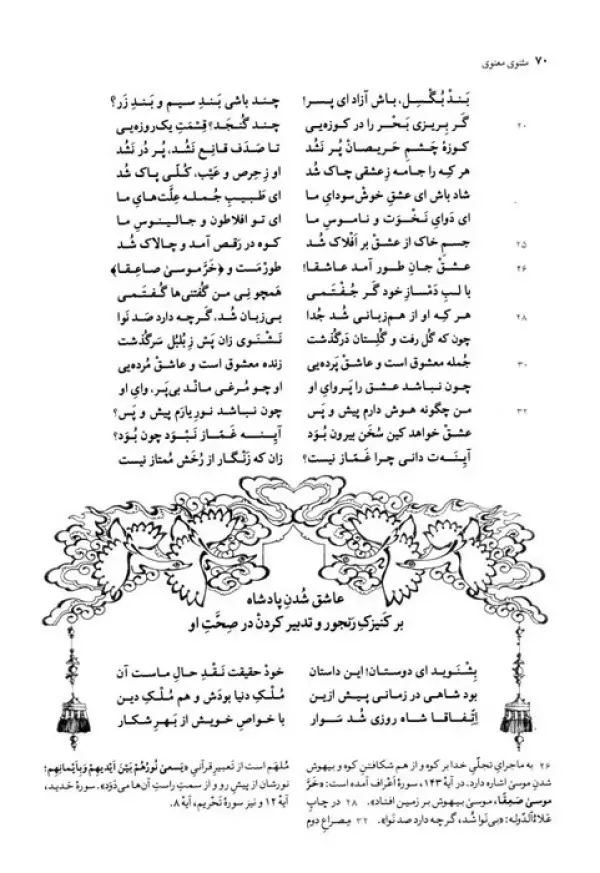 ۷۰ مثنوی معنوی
بَندْ بُگْسِل، باش آزاد ای پسر! چند باشی بَندِ سیم و بَندِ زَر؟
۲۰ گَر بِریزی بَحْر را در کوزه‌یی چند گُنجَد؟ قِسْمَتِ یک‌روزه‌یی
کوزهٔ چَشمِ حَریصان پُر نَشُد تا صَدَف قانِع نَشُد، پُر دُر نَشُد
هر که را جامه زِ عشقی چاک شُد او زِ حِرص و عَیْب، کُلّی پاک شُد
شاد باش ای عشقِ خوش‌سودای ما ای طَبیبِ جُمله عِلَّت‌های ما
ای دَوایِ نَخْوَت و ناموسِ ما ای تو افلاطون و جالینوسِ ما
۲۵ جسمِ خاک از عشقْ بر اَفْلاک شُد کوه در رَقص آمد و چالاک شُد
۲۶ عشقْ جانِ طور آمد عاشقا! طورْ مَست و ﴿خَرَّ موسیٰ صاعِقا﴾
با لبِ دَمْسازِ خود گَر جُفْتَمی همچو نِی من گُفتنی‌ها گُفْتَمی
۲۸ هر که او از هم‌زبانی شُد جُدا بی‌زبان شُد، گَرچه دارد صَد نَوا
چون که گُل رفت و گُلِستان دَرگُذشت نَشْنَوی زان پَس زِ بُلبُل سَرگُذشت
۳۰ جُمله معشوق است و عاشقْ پَرده‌یی زنده معشوق است و عاشقْ مُرده‌یی
چون نباشد عشق را پَروایِ او او چو مُرغی مانْد بی‌پَر، وایِ او
۳۲ من چگونه هوش دارم پیش و پَس چون نباشد نورِ یارَم پیش و پَس؟
عشقْ خواهد کین سُخَن بیرون بُوَد آیِنه غَمّاز نَبْوَد چون بُوَد؟
آیِنه‌ت دانی چرا غَمّاز نیست؟ زان که زَنْگار از رُخَش مُمتاز نیست
عاشق شُدنِ پادشاه
بر کَنیزکِ رَنجور و تدبیر کردنْ در صِحَّتِ او
بِشْنَوید ای دوستان! این داستان خودْ حقیقت نَقْدِ حالِ ماست آن
بود شاهی در زمانی پیش ازین مُلْکِ دنیا بودَش و هم مُلْکِ دین
اِتِّفاقا شاه روزی شُد سَوار با خواصِ خویش از بَهرِ شکار
۲۶ به ماجرای تجلّی خدا بر کوه و از هم شکافتن کوه و بیهوش
شدنِ موسیٰ اشاره دارد. در آیهٔ ۱۴۳، سورهٔ اَعْراف آمده است: «خَرَّ
موسیٰ صَعِقًا، موسیٰ بیهوش بر زمین افتاد». ۲۸ در چاپِ
عَلاءُالدّوله: «بی‌نَوا شُد، گرچه دارد صد نَوا». ۳۲ مِصراعِ دوم
مُلهَم است از تعبیرِ قرآنیِ «یَسعیٰ نورُهُمْ بَیْنَ اَیْدیهِمْ وَ بِاَیْمانِهِم؛
نورشان از پیشِ رو و از سمتِ راستِ آن‌ها می‌دَوَد». سورهٔ حدید،
آیهٔ ۱۲ و نیز سورهٔ تَحْریم، آیهٔ ۸.